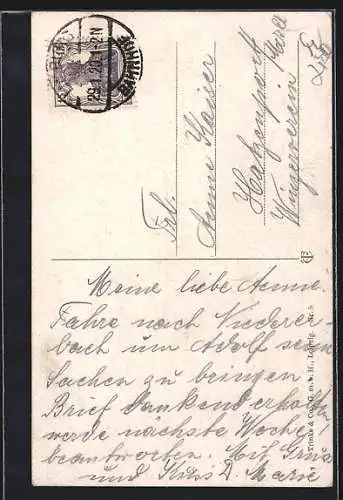 29.1.20.1-2N
BAHNHOF
Frl.
Aenne Kaiser
Hatzenport
Mosel
Winzerverein
Meine liebe Aenne.
Fahre nach Niederer-
bach um Adolf seine
Sachen zu bringen
Brief dankend erhalten
werde nächste Woche
beantworten. Mit Gruss
und Kuss D. Marie
Trinks & Co., G. m. b. H., Leipzig.